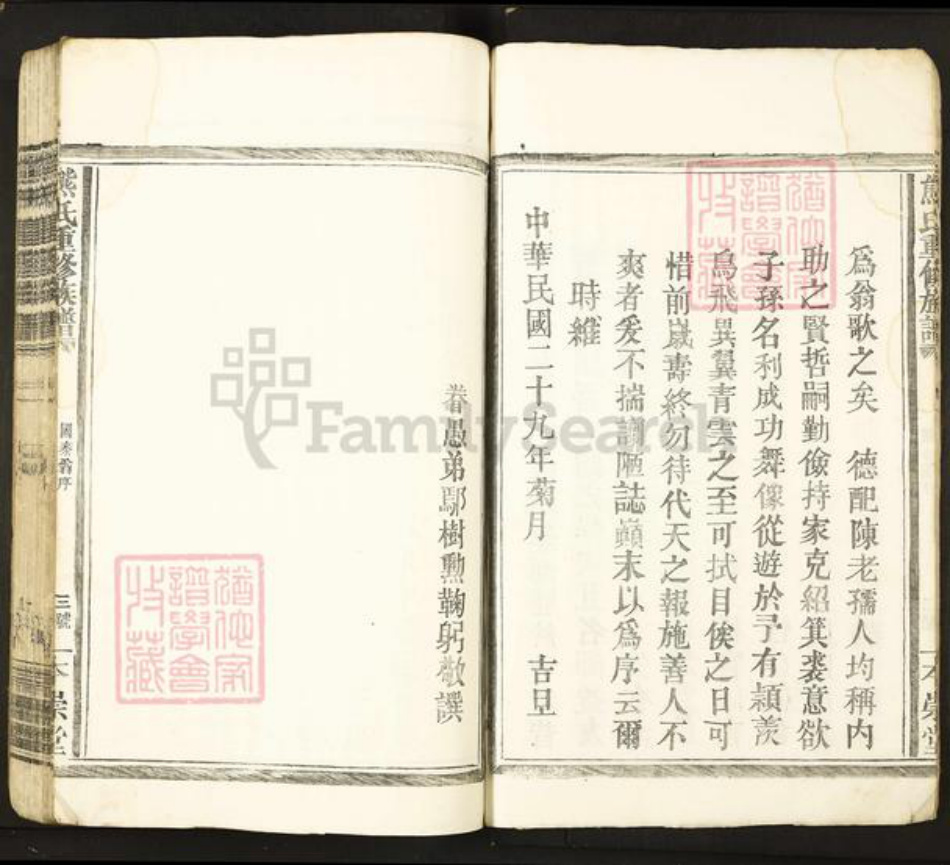 為翁歌之矣　德配陳老孺人均稱內
助之賢哲嗣勤儉持家克紹箕裘意欲
子孫名利成功舞像從遊於予有穎羨
烏飛異翼青雲之至可拭目俟之日可
惜前歲壽終勿待代天之報施善人不
爽者爰不揣謭陋誌巔末以為序云爾
時維
中華民國二十九年菊月　吉旦
眷愚弟鄢樹勳鞠躬敬譔
熊氏重修族譜
國泰翁序
三號
本崇堂
譜學會
收藏
FamilySearch